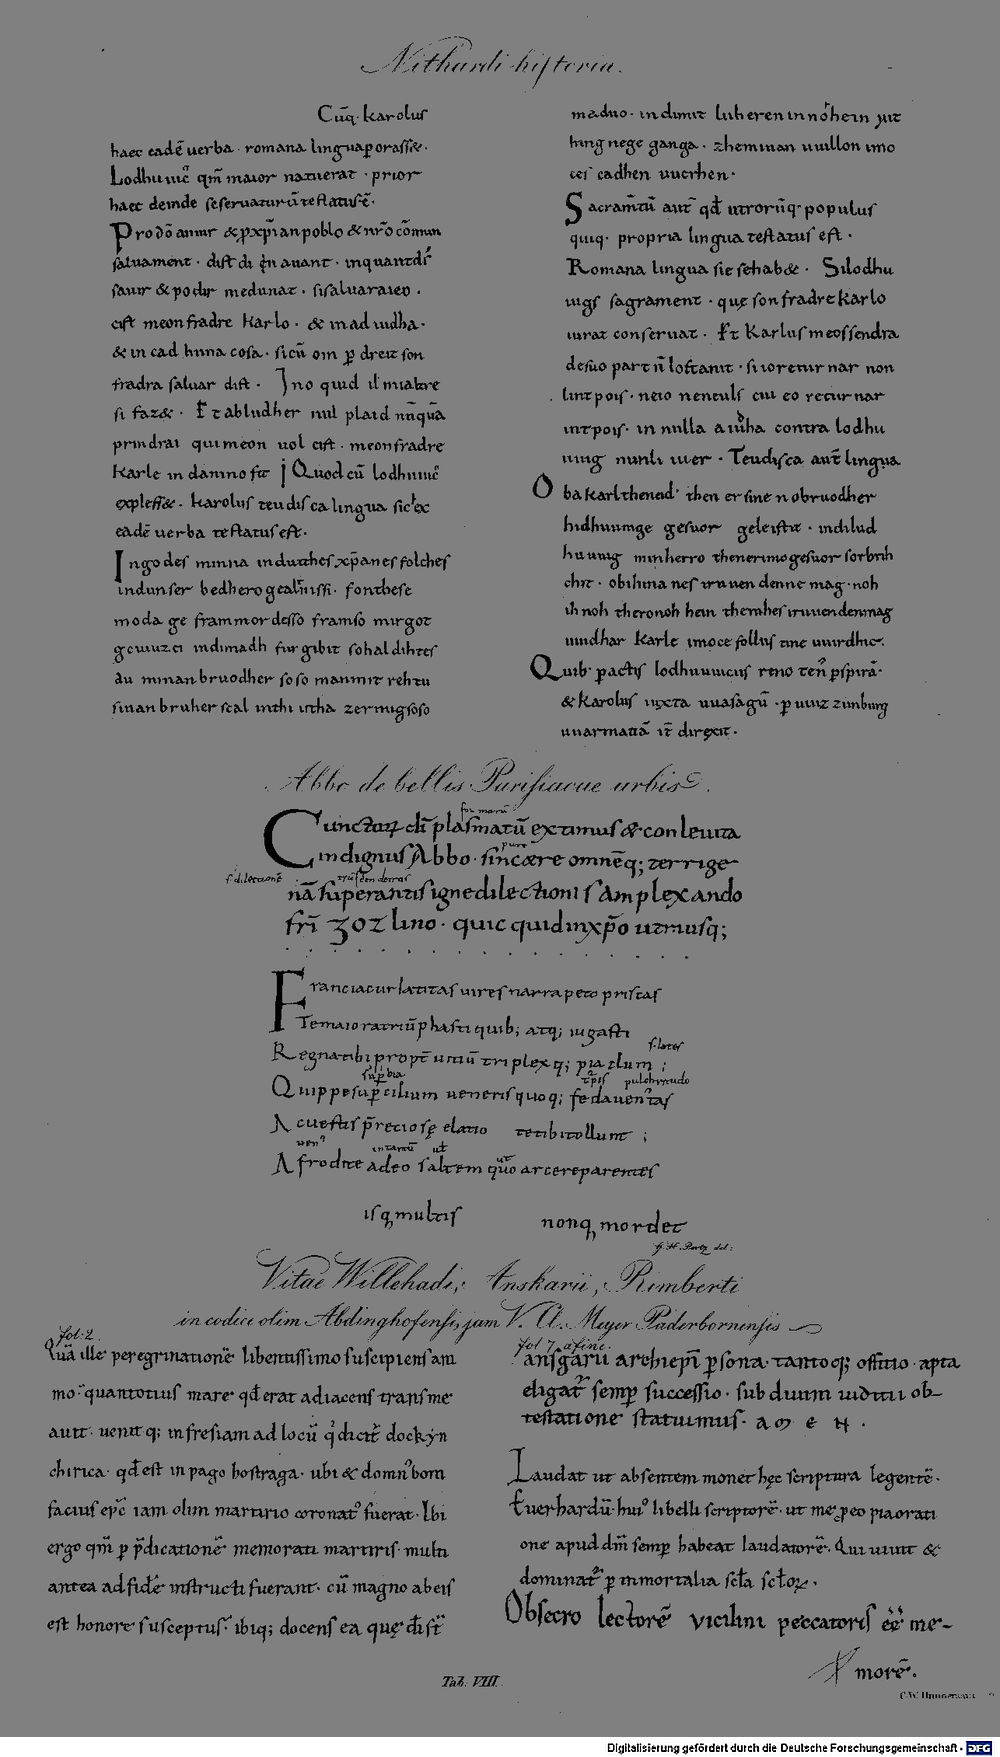 Nithardi historia.
Cūq· karolus
haec eadē uerba · romana linguaꝑorasset·
Lodhuuic' qm̄ maior natuerat · prior
haec deinde seseruaturū testatus ē·
Prodō amur &ꝓxp̄ian poblo & nr̄o cōmun
saluament · dist di en auant · inquantds
sauir & podir medunat · sisaluaraieo ·
cist meon fradre Karlo · & in ad iudha·
& in cad huna cosa · sicū om ꝑ dreit son
fradra saluar dist · Ino quid il mialtre
si faz& · Et abludher nul plaid nūquā
prindrai qui meon uol cist · meonfradre
Karle in damno sit Quod cū lodhuuic'
explesset · karolus teudisca lingua sic ec
eadē uerba testatus est·
Ingodes minna induithes xp̄anes folches
indunser bedhero gealtnissi · fonthese
moda ge frammordesso framso mirgot
geuuizci indimadh furgibit sohaldihtes
an minan bruodher soso manmit rehtu
sinan bruher scal inthi utha zermigsoso
maduo · indimit luheren innohein iut
hing nege ganga · zheminan uuillon imo
ces cadhen uuerhen·
Sacramtū aut qđ utrorūq· populus
quiq· propria lingua testatus est ·
Romana lingua sic sehab& · Silodhu
uigs sagrament · quę son fradre karlo
iurat conseruat · Et Karlus meossendra
desuo part n̄ lostanit · si ioreturnar non
lint pois · neio neneuls cui eo returnar
intpois · in nulla aiudha contra lodhu
uuig nunli iuer · Teudisca aut lingua
Oba karl theneid· then er sine n obruodher
hidhuuuige gesuor geleistit · indilud
huuuig minherro thenerimogesuor forbrih
chit · obihina nes iruuen denne mag · noh
ih noh theronoh hein thenihes iruuendenmag
uuidhar Karle imoce follus tine uuirdhic·
Quib· pactis lodhuuuicus reno ten' ꝑspirā·
& karolus iuxta uuasagū · ꝑ uuiz zunburg
uuarmatiā it direxit ·
Abbo de bellis Parisiacae urbis.
Cunctorum dī plasmatū extimus & con leuita
indignus Abbo · sincere omnēq; terrige
s· dilectionē
nā superantis igne dilectionis amplexando
frī gozlino · quic quid inxp̄o utriusq;
Francia cur latitas uires narra peto priscas
Te maiora triūphasti quib; atq; iugasti
Regna tibi propt' uitiū triplexq; piaclum ;
Quippe supcilium ueneris quoq; feda uen'tas
pulchritudo
Ac uestis p̄reciosę elatio tetibitollunt ;
Afrodite adeo saltem quo arcere parentes
isq multis nonq mordet
G. H. Pertz del:
Vitae Willehadi, Anskarii, Rimberti
in codice olim Abdinghofensi, jam V. Cl. Meyer Paderbornensis
fol· 2.
Quā ille peregrinationē libentissimo suscipiens am
mo· quantotius mare qđerat adiacens transme
auit· uenitq; infresiam ad locū q̇ dicit dockyn
chirica· qđest in pago hostraga· ubi & domn' boni
facius ep̄c iam olim martirio coronat' fuerat· Ibi
ergo qm̄ ꝑ p̄dicationē memorati martiris· multi
antea ad fidē instructi fuerant· cū magno abeis
est honore susceptus· ibiq; docens ea quę dist
fol 7. a fine.
ansgarii archiepi ꝑsona· tantoq; offitio · apta
eligat' semꝑ successio · sub diuini iuditii ob-
testatione statuimus · a m e n ·
Laudat ut absentem monet hęc scriptura legentē·
Euerhardū· hui' libelli scriptorē· ut me ꝓeo piaorati
one apud dm̄ semꝑ habeat laudatorē. Qui uiuit &
dominat' ꝑ inmortalia scla sclorum·
Obsecro lectorē vicilini peccatoris eē me-
morē·
Tab. VIII.
Digitalisierung gefördert durch die Deutsche Forschungsgemeinschaft - DFG